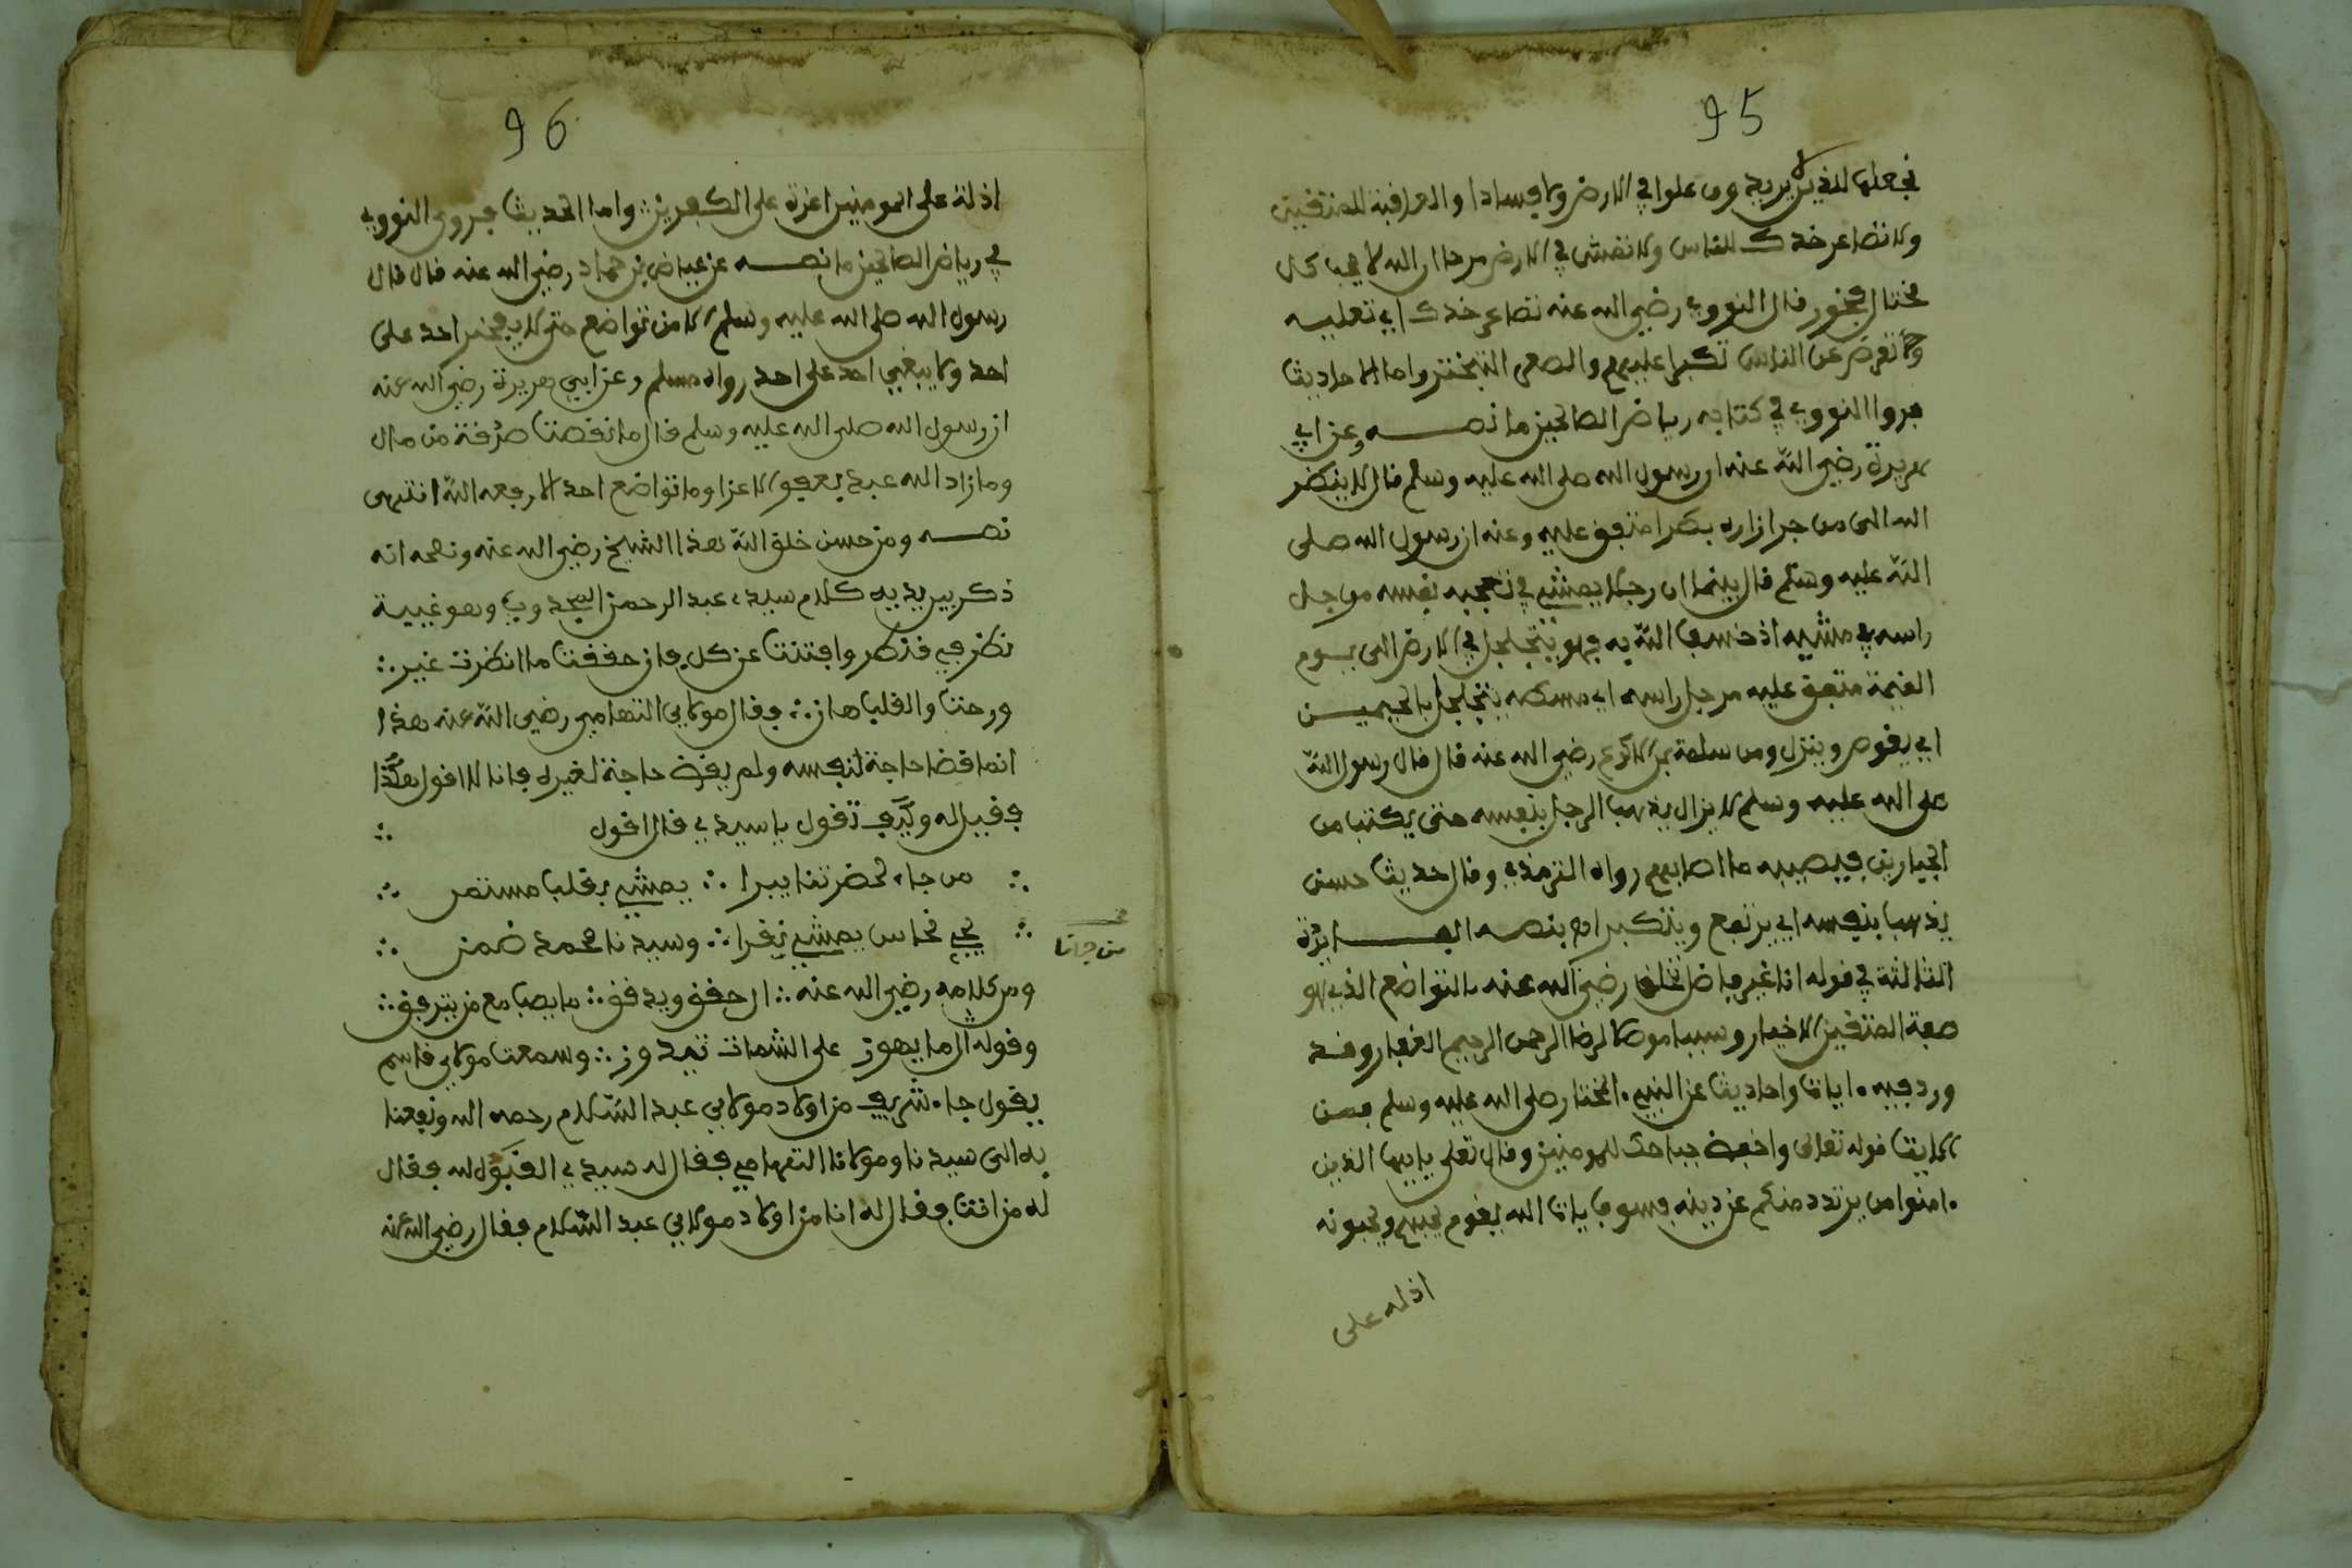 95
نجعلها للذين لا يريدون علوا في الارض ولا فسادا والعاقبة للمتقين
ولا تصاعر خدك للناس ولا تمشي في الارض مرحا ان الله لا يحب كل
مختال فخور قال النووي رضي الله عنه تصاعر خدك اي تعليه
وتعرض عن الناس تكبرا عليهم والصعر التبختر واما الاحاديث
فروا النووي في كتابه رياض الصالحين ما نصه وعن ابي
هريرة رضي الله عنه ان رسول الله صلى الله عليه وسلم قال لا ينضر
الله الى من جر ازاره بطرا متفق عليه وعنه ان رسول الله صلى
الله عليه وسلم قال بينما ان رجلا يمشي في تعجبه نفسه مرجل
راسه في مشيه اذ خسف الله به فهو يتجلجل في الارض الى يوم
القيمة متفق عليه مرجل راسه اي مسكه يتجلجل بالجيمين
اي يغوص وينزل وعن سلمة بن الاكوع رضي الله عنه قال قال رسول الله
صلى الله عليه وسلم لا يزال يذهب الرجل بنفسه حتى يكتب من
الجبارين فيصيبه ما اصابهم رواه الترمذي وقال حديث حسن
يذهب بنفسه اي يرتفع ويتكبر اه بنصه الفائدة
الثالثة في قوله انا غير فاضل تخلق رضي الله عنه بالتواضع الذي هو
صفة المتقين الاخيار وسببا موصلا لرضا الرحمن الرحيم الغفار وقد
ورد فيه ءايات واحاديث عن النبيء المختار صلى الله عليه وسلم فمن
الايت قوله تعالى واخفض جناحك للمومنين وقال تعلى يا ايها الذين
ءامنوا من يرتدد منكم عن دينه فسوف يات الله بقوم يحبهم ويحبونه
اذلة على
96
اذلة على المومنين اعزة على الكفرين واما الحديث فروى النووي
في رياض الصالحين ما نصه عن عياض بن حماد رضي الله عنه قال قال
رسول الله صلى الله عليه وسلم الا من تواضع حتى لا يفخر احد على
احد ولا يبغي احد على احد رواه مسلم وعن ابي هريرة رضي الله عنه
ان رسول الله صلى الله عليه وسلم قال ما نقصت صدقة من مال
وما زاد الله عبدا بعفو الا عزا وما تواضع احد الا رفعه الله انتهى
نصه ومن حسن خلق الله هذا الشيخ رضي الله عنه ونصحه انه
ذكر بين يديه كلام سيدي عبد الرحمن المجدوب وهو غيبة
نظر في فذكر وافتنت عن كل فان حققت ما انظرت غير ∴
ورحت والقلب هان ∴ فقال مولاي التهامي رضي الله عنه هذا
انما قضا حاجة لنفسه ولم يقض حاجة لغيره فانا لا اقول هكذا
فقيل له وكيف تقول يا سيدي قال اقول ∴
∴ من جاء لحضرتنا يبرا ∴ يمشي بقلب مستمر ∴
∴ يجي نحاس يمشي نقرا ∴ وسيدنا محمد ضمن ∴
من جانا
ومن كلامه رضي الله عنه ∴ ال حقق ويدقق ∴ ما يصب مع من يترفق ∴
وقوله ال ما يهون على الشمات تيدوز ∴ وسمعت مولاي قاسم
يقول جاء شريف من اولاد مولاي عبد السلام رحمه الله ونفعنا
به الى سيدنا ومولانا التهامي فقال له سيدي القبول لله فقال
له من انت فقال له انا من اولاد مولاي عبد السلام فقال رضي الله عنه